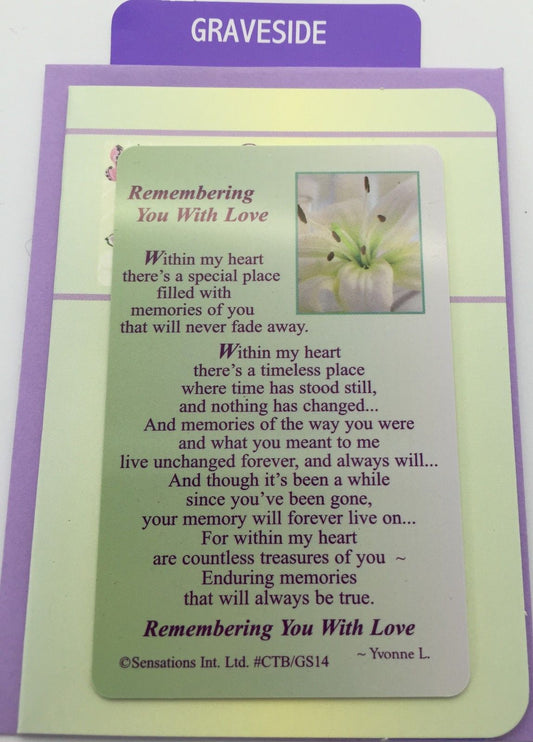 GRAVESIDE
Remembering
You With Love
Within my heart
there's a special place
filled with
memories of you
that will never fade away.
Within my heart
there's a timeless place
where time has stood still,
and nothing has changed...
And memories of the way you were
and what you meant to me
live unchanged forever, and always will...
And though it's been a while
since you've been gone,
your memory will forever live on...
For within my heart
are countless treasures of you ~
Enduring memories
that will always be true.
Remembering You With Love
~ Yvonne L.
©Sensations Int. Ltd. #CTB/GS14